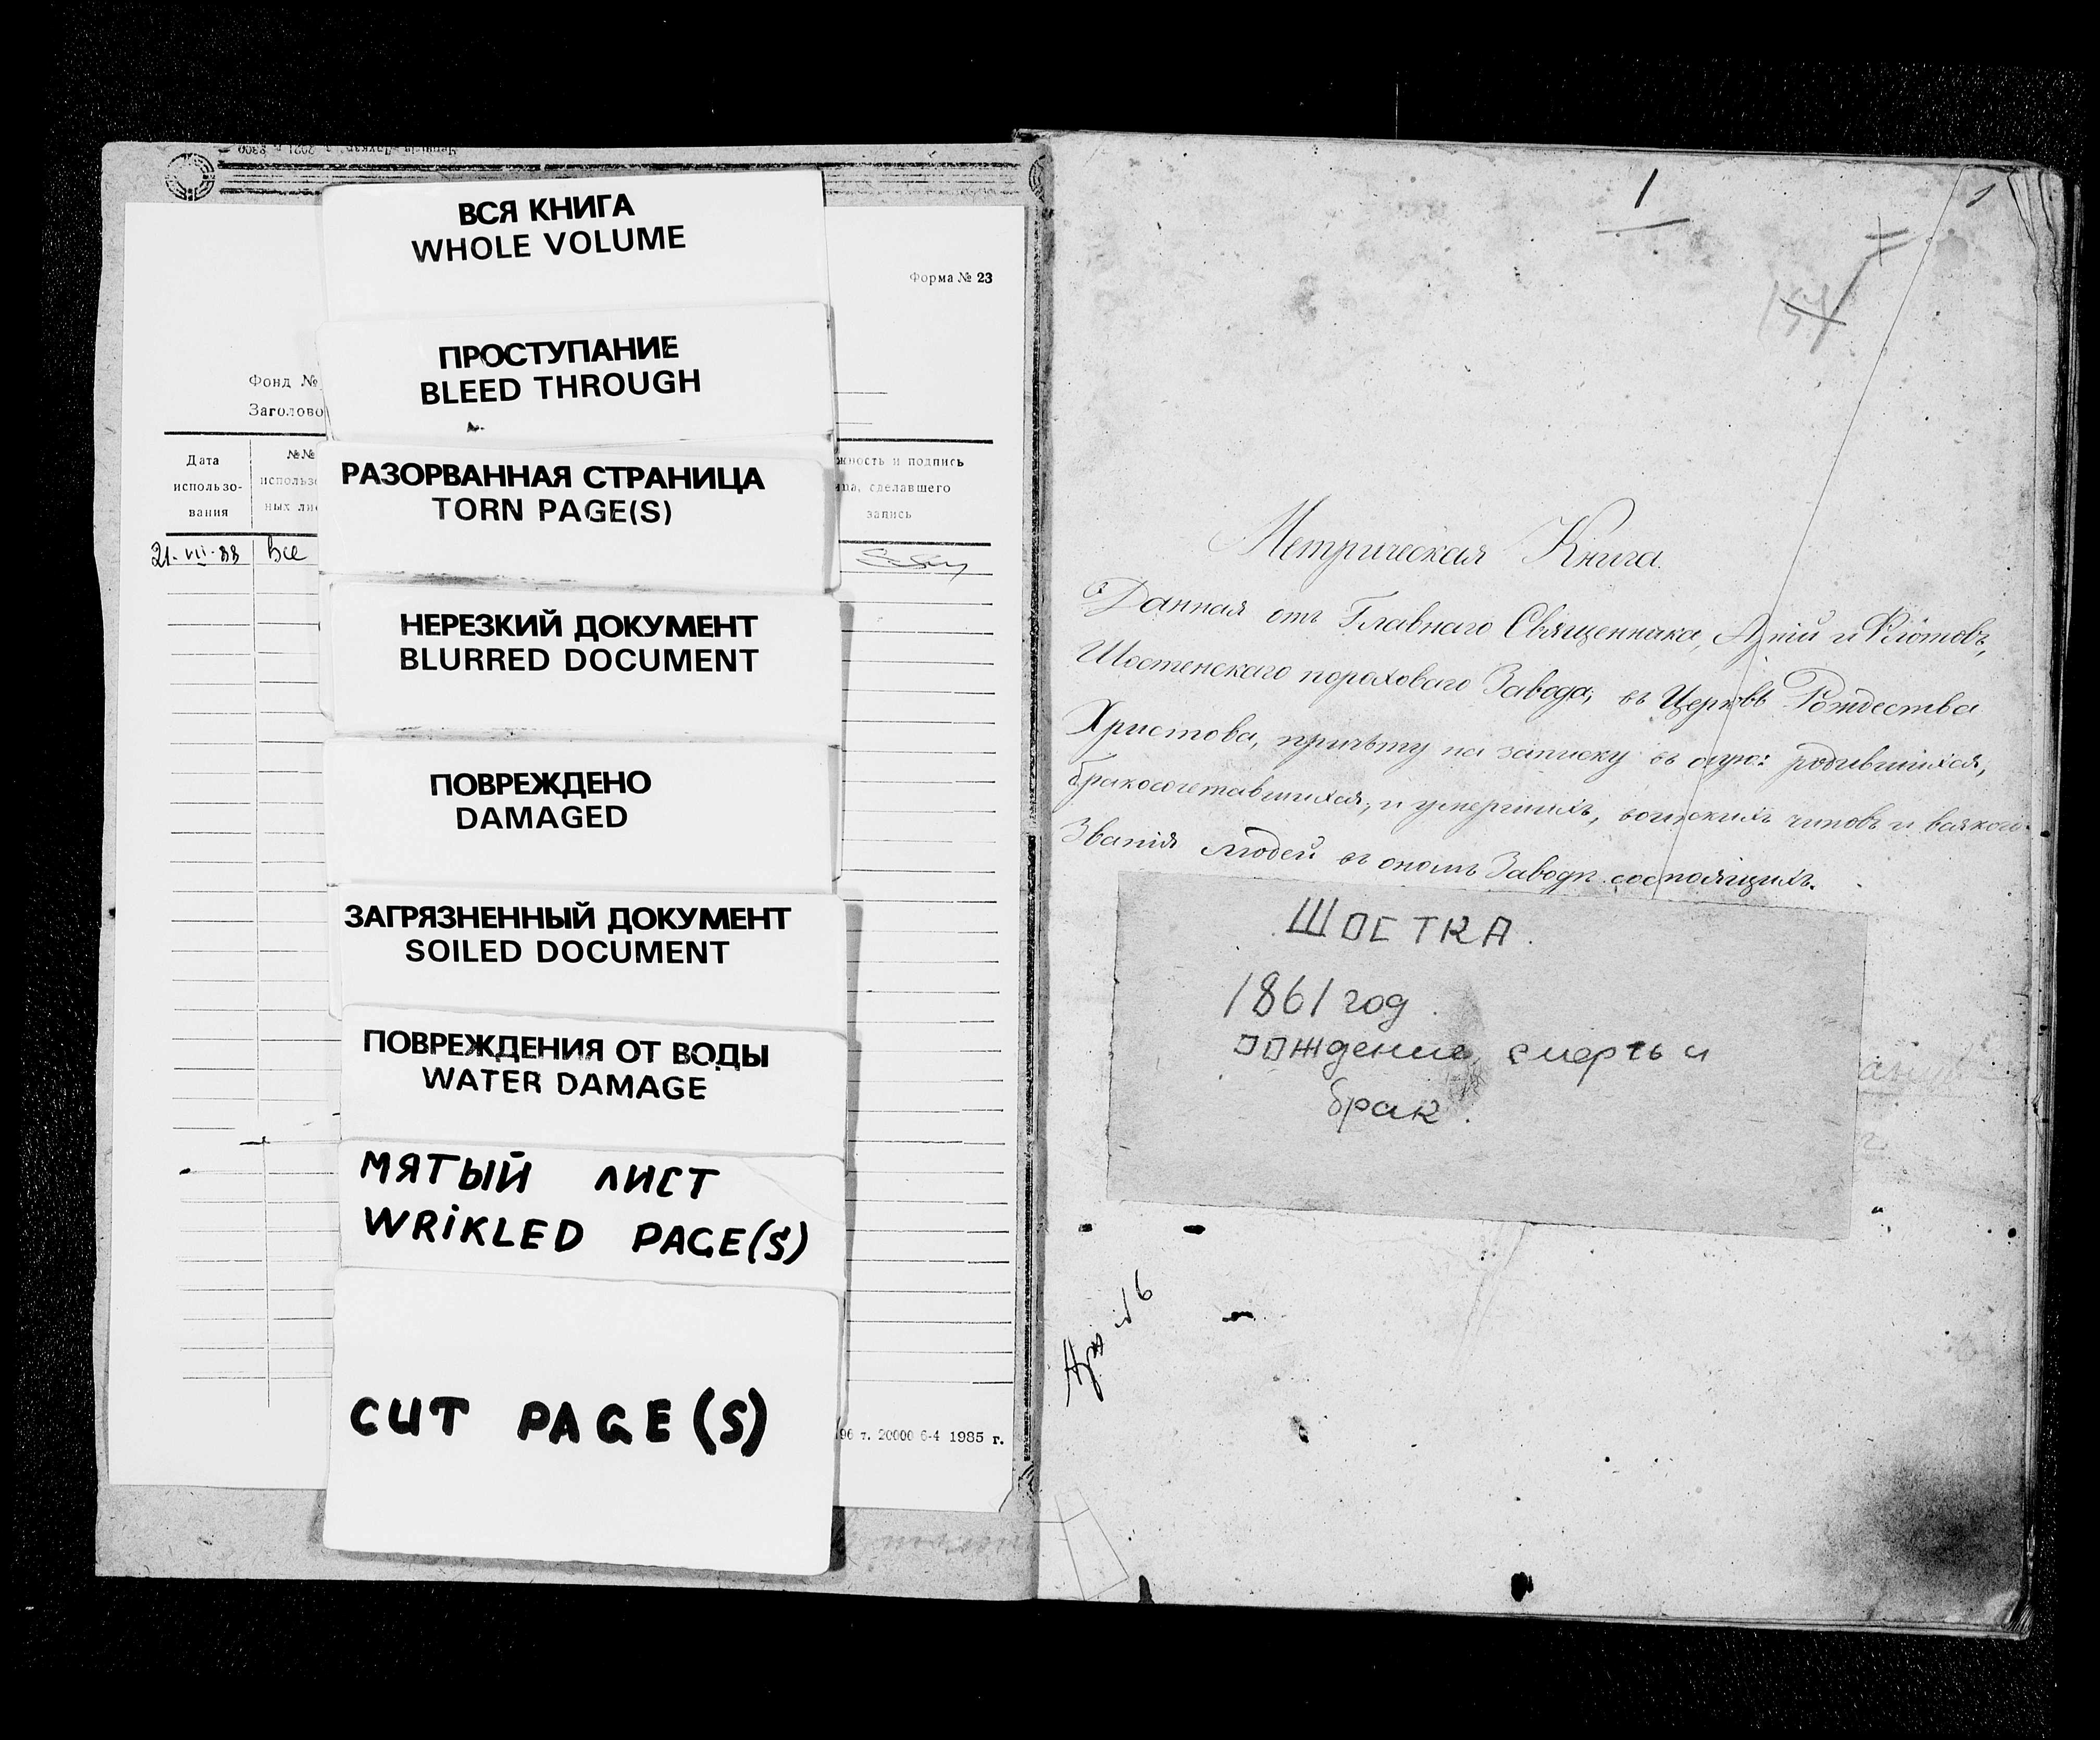 ВСЯ КНИГА
WHOLE VOLUME
Форма № 23
ПРОСТУПАНИЕ
BLEED THROUGH
Фонд №
Заголово
РАЗОРВАННАЯ СТРАНИЦА
TORN PAGE(S)
Дата
использо-
вания
№№
использо
ных лис
жность и подпись
ица, сделавшего
запись
21-VII-88 Все
НЕРЕЗКИЙ ДОКУМЕНТ
BLURRED DOCUMENT
ПОВРЕЖДЕНО
DAMAGED
ЗАГРЯЗНЕННЫЙ ДОКУМЕНТ
SOILED DOCUMENT
ПОВРЕЖДЕНИЯ ОТ ВОДЫ
WATER DAMAGE
МЯТЫЙ ЛИСТ
WRIKLED PAGE(S)
CUT PAGE(S)
96 т. 20000 6-4 1985 г.
1
1
Метрическая Книга.
Данная отъ Главнаго Священника, Армій и Флотовъ,
Шостенскаго пороховаго Завода, въ Церковь Рождества
Христова, причту на записку въ оную: родившихся,
бракосочетавшихся, и умершихъ, воинскихъ чиновъ и всякого
Званія людей въ ономъ Заводѣ состоящихъ.
ШОСТКА.
1861 год.
рождение, смерть и
брак.